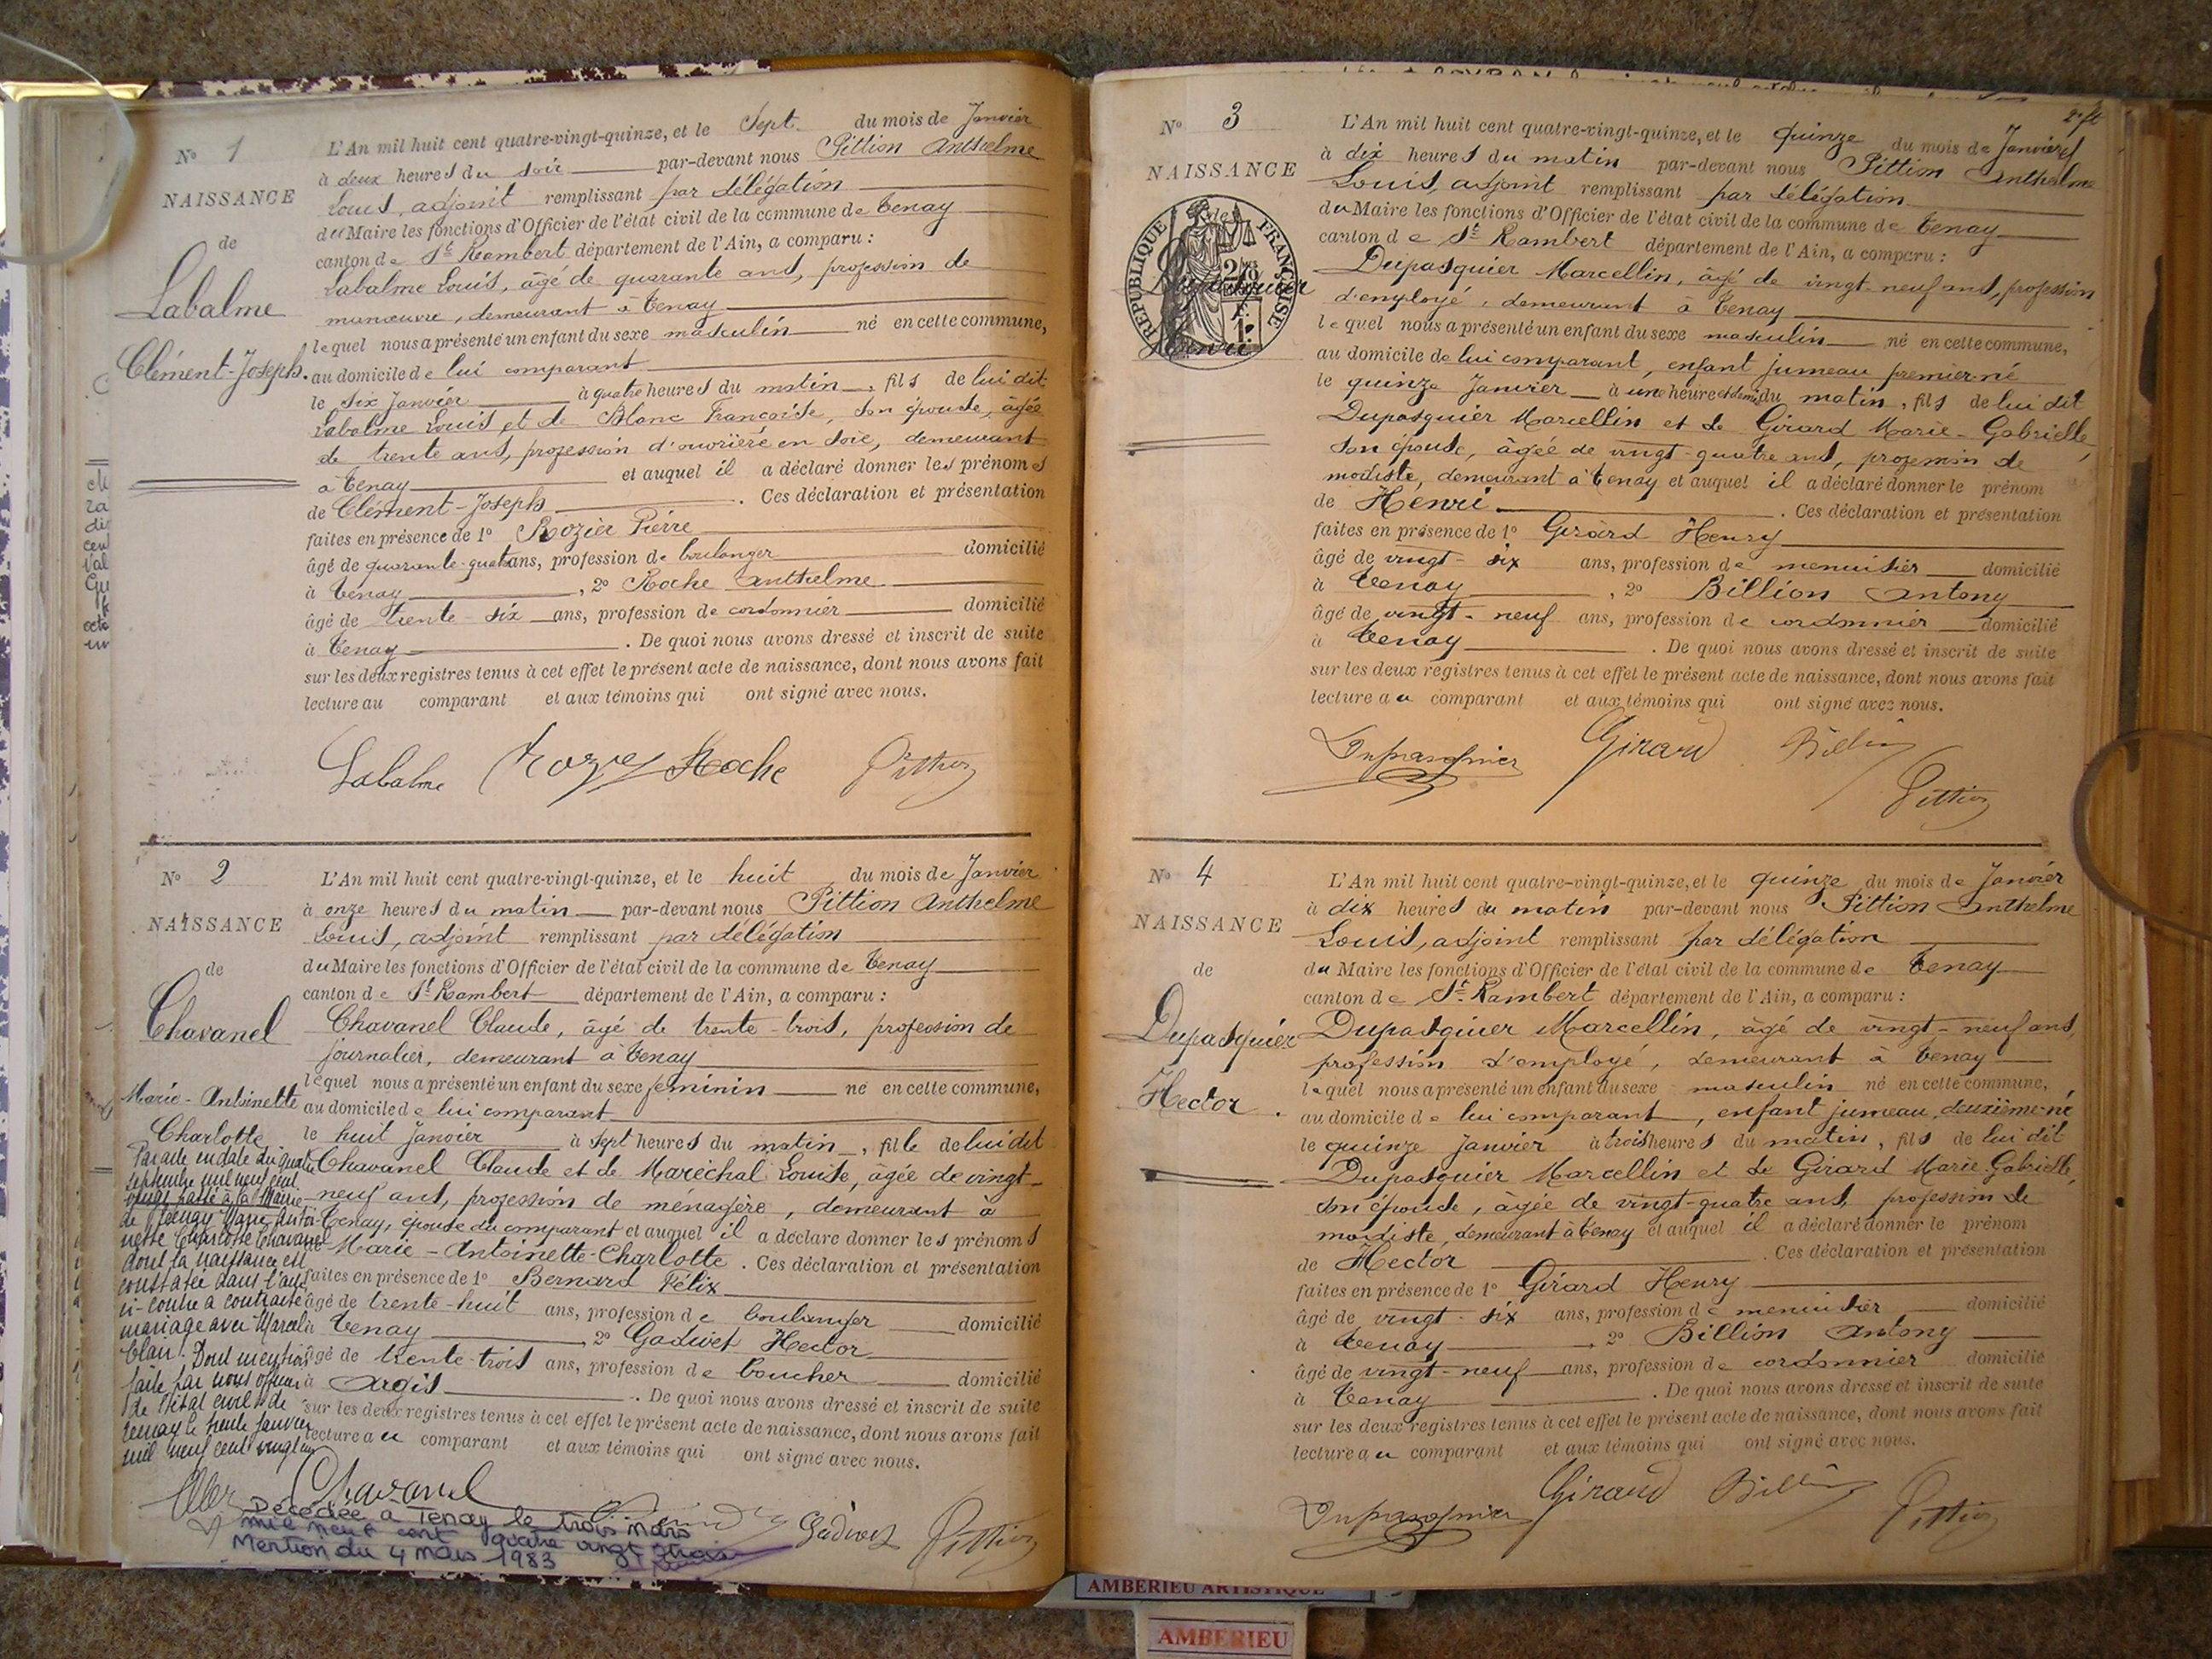 N° 1
NAISSANCE
de
Labalme
Clément-Joseph.
L'An mil huit cent quatre-vingt-quinze, et le Sept du mois de Janvier
à deux heures du soir par-devant nous Pittion Anthelme
Louis, adjoint remplissant par délégation
du Maire les fonctions d'Officier de l'état civil de la commune de Tenay
canton de St Rambert département de l'Ain, a comparu :
Labalme Louis, âgé de quarante ans, profession de
manœuvre, demeurant à Tenay
lequel nous a présenté un enfant du sexe masculin né en cette commune,
au domicile de lui comparant
le six Janvier à quatre heures du matin, fils de lui dit
Labalme Louis et de Blanc Françoise, son épouse, âgée
de trente ans, profession d'ouvrière en soie, demeurant
à Tenay et auquel il a déclaré donner les prénoms
de Clément-Joseph. Ces déclaration et présentation
faites en présence de 1° Rozier Pierre
âgé de quarante-quatre ans, profession de boulanger domicilié
à Tenay, 2° Roche Anthelme
âgé de trente-six ans, profession de cordonnier domicilié
à Tenay. De quoi nous avons dressé et inscrit de suite
sur les deux registres tenus à cet effet le présent acte de naissance, dont nous avons fait
lecture au comparant et aux témoins qui ont signé avec nous.
Labalme Rozier Roche Pittion
N° 2
NAISSANCE
de
Chavanel
Marie-Antoinette
Charlotte
L'An mil huit cent quatre-vingt-quinze, et le huit du mois de Janvier
à onze heures du matin par-devant nous Pittion Anthelme
Louis, adjoint remplissant par délégation
du Maire les fonctions d'Officier de l'état civil de la commune de Tenay
canton de St Rambert département de l'Ain, a comparu :
Chavanel Claude, âgé de trente-trois, profession de
journalier, demeurant à Tenay
lequel nous a présenté un enfant du sexe féminin né en cette commune,
au domicile de lui comparant
le huit Janvier à sept heures du matin, fille de lui dit
Chavanel Claude et de Maréchal Louise, âgée de vingt-
neuf ans, profession de ménagère, demeurant à
Tenay, épouse du comparant et auquel il a déclaré donner les prénoms
de Marie-Antoinette-Charlotte. Ces déclaration et présentation
faites en présence de 1° Bernard Félix
âgé de trente-huit ans, profession de boulanger domicilié
à Tenay 2° Gadivet Hector
âgé de trente-trois ans, profession de boucher domicilié
à Argis. De quoi nous avons dressé et inscrit de suite
sur les deux registres tenus à cet effet le présent acte de naissance, dont nous avons fait
lecture au comparant et aux témoins qui ont signé avec nous.
Par acte en date du quatre
septembre mil neuf cent
passé à la Mairie
de Tenay Marie Antoi-
nette Charlotte Chavanel
dont la naissance est
constatée dans l'acte
ci-contre a contracté
mariage avec Marcel
Clau. Dont mention
faite par nous officier
de l'état civil de
Tenay le trente Janvier
mil neuf cent vingt un
Chavanel Gadivet Pittion
Décédée à Tenay le trois mars
mil neuf cent quatre vingt trois
Mention du 4 mars 1983
2e ft
N° 3
NAISSANCE
de
RÉPUBLIQUE FRANÇAISE
Dupasquier
Henri
L'An mil huit cent quatre-vingt-quinze, et le quinze du mois de Janvier
à dix heures du matin par-devant nous Pittion Anthelme
Louis, adjoint remplissant par délégation
du Maire les fonctions d'Officier de l'état civil de la commune de Tenay
canton de St Rambert département de l'Ain, a comparu :
Dupasquier Marcellin, âgé de vingt-neuf ans, profession
d'employé, demeurant à Tenay
lequel nous a présenté un enfant du sexe masculin né en cette commune,
au domicile de lui comparant, enfant jumeau premier-né
le quinze Janvier à une heure et demie du matin, fils de lui dit
Dupasquier Marcellin et de Girard Marie-Gabrielle,
son épouse, âgée de vingt-quatre ans, profession de
modiste, demeurant à Tenay et auquel il a déclaré donner le prénom
de Henri. Ces déclaration et présentation
faites en présence de 1° Girard Henry
âgé de vingt-six ans, profession de menuisier domicilié
à Tenay, 2° Billion Antony
âgé de vingt-neuf ans, profession de cordonnier domicilié
à Tenay. De quoi nous avons dressé et inscrit de suite
sur les deux registres tenus à cet effet le présent acte de naissance, dont nous avons fait
lecture au comparant et aux témoins qui ont signé avec nous.
Dupasquier Girard Billion
Pittion
N° 4
NAISSANCE
de
Dupasquier
Hector.
L'An mil huit cent quatre-vingt-quinze, et le quinze du mois de Janvier
à dix heures du matin par-devant nous Pittion Anthelme
Louis, adjoint remplissant par délégation
du Maire les fonctions d'Officier de l'état civil de la commune de Tenay
canton de St Rambert département de l'Ain, a comparu :
Dupasquier Marcellin, âgé de vingt-neuf ans,
profession d'employé, demeurant à Tenay
lequel nous a présenté un enfant du sexe masculin né en cette commune,
au domicile de lui comparant, enfant jumeau deuxième-né
le quinze Janvier à trois heures du matin, fils de lui dit
Dupasquier Marcellin et de Girard Marie-Gabrielle,
son épouse, âgée de vingt-quatre ans, profession de
modiste, demeurant à Tenay et auquel il a déclaré donner le prénom
de Hector. Ces déclaration et présentation
faites en présence de 1° Girard Henry
âgé de vingt-six ans, profession de menuisier domicilié
à Tenay, 2° Billion Antony
âgé de vingt-neuf ans, profession de cordonnier domicilié
à Tenay. De quoi nous avons dressé et inscrit de suite
sur les deux registres tenus à cet effet le présent acte de naissance, dont nous avons fait
lecture au comparant et aux témoins qui ont signé avec nous.
Dupasquier Girard Billion Pittion
AMBERIEU ARTISTIQUE
AMBERIEU